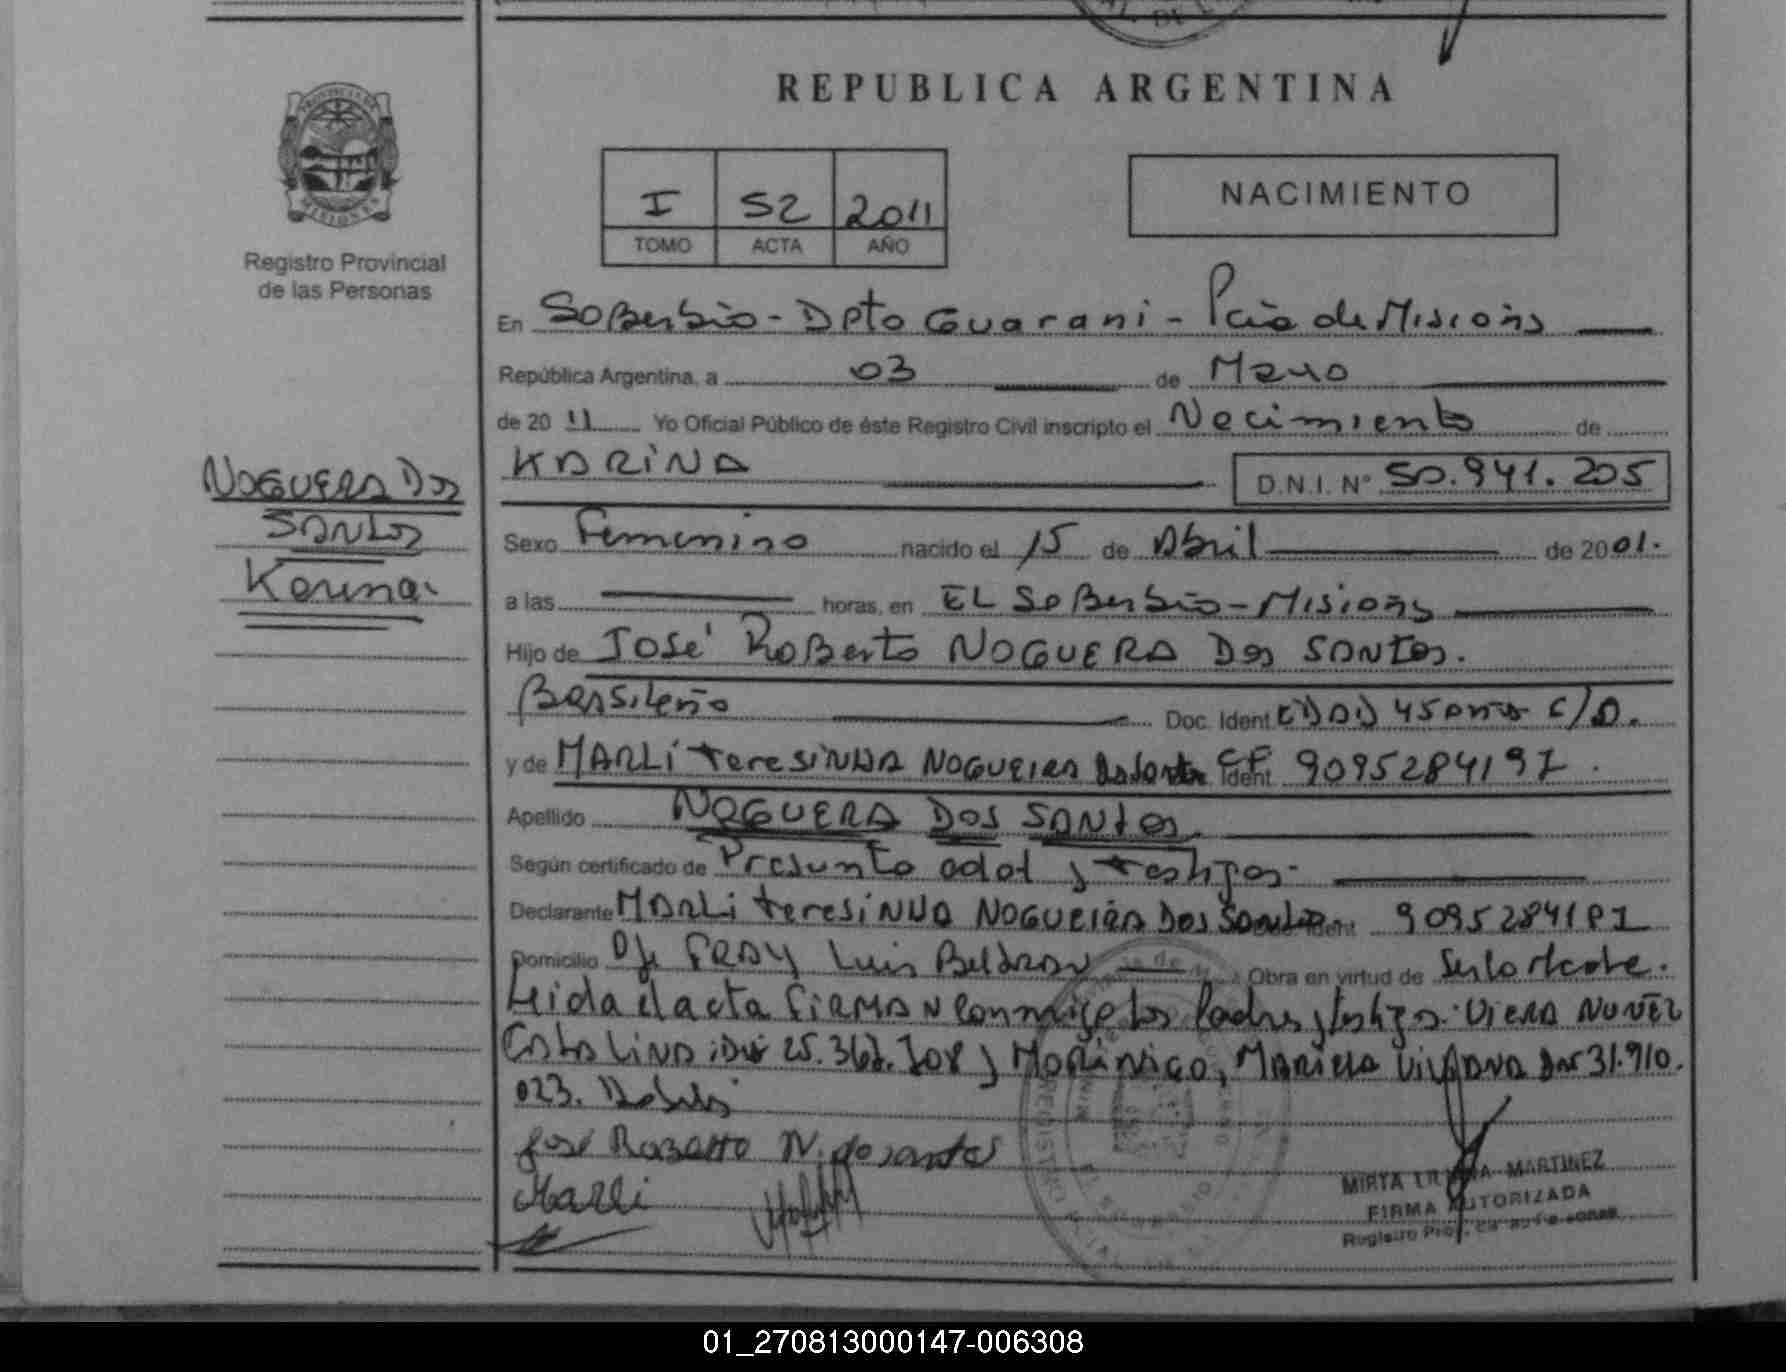 REPUBLICA ARGENTINA
PROVINCIA DE
MISIONES
Registro Provincial
de las Personas
I 52 2011
TOMO ACTA AÑO
NACIMIENTO
En Soberbio - Dpto Guarani - Pcia de Misiones
República Argentina, a 03 de Mayo
de 20 11 Yo Oficial Público de éste Registro Civil inscripto el Nacimiento de
KARINA D.N.I. N° 50.941.205
NOGUERA DOS
SANTOS
Karina
Sexo Femenino nacido el 15 de Abril de 2001.
a las horas, en EL Soberbio - Misiones
Hijo de José Roberto NOGUERA Dos SANTOS.
Brasileño Doc. Ident EDAD 45 años C/D.
y de MARLI teresinha NOGUEIRA dos santos CF Ident 9095284197.
Apellido NOGUERA DOS SANTOS
Según certificado de Presunta edad y testigos.
Declarante MARLi teresinha NOGUEIRA DOS SANTOS Ident
Domicilio FRAY Luis Beltran Obra en virtud de
Leida el acta FIRMAN conmigo los Padres y testigos: VIERA NUÑEZ
CATALINA DNI y MARIELA DNI 31.910.
023.
José Roberto N. dos santos
Marli
MIRTA MARTINEZ
FIRMA AUTORIZADA
Registro
01_270813000147-006308